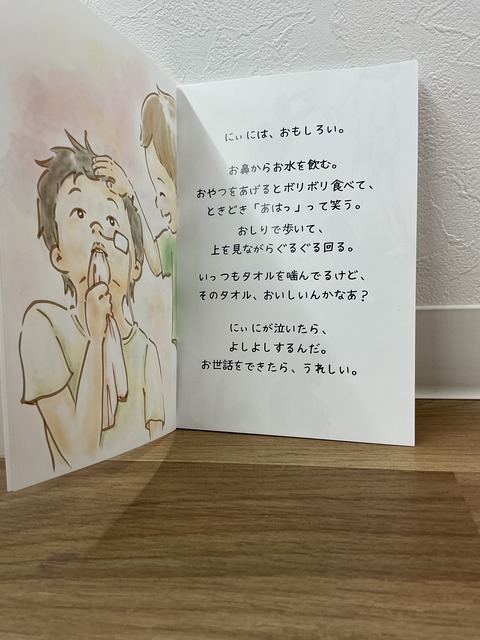 にぃには、おもしろい。
お鼻からお水を飲む。
おやつをあげるとボリボリ食べて、
ときどき「あはっ」って笑う。
おしりで歩いて、
上を見ながらぐるぐる回る。
いっつもタオルを噛んでるけど、
そのタオル、おいしいんかなあ？
にぃにが泣いたら、
よしよしするんだ。
お世話をできたら、うれしい。